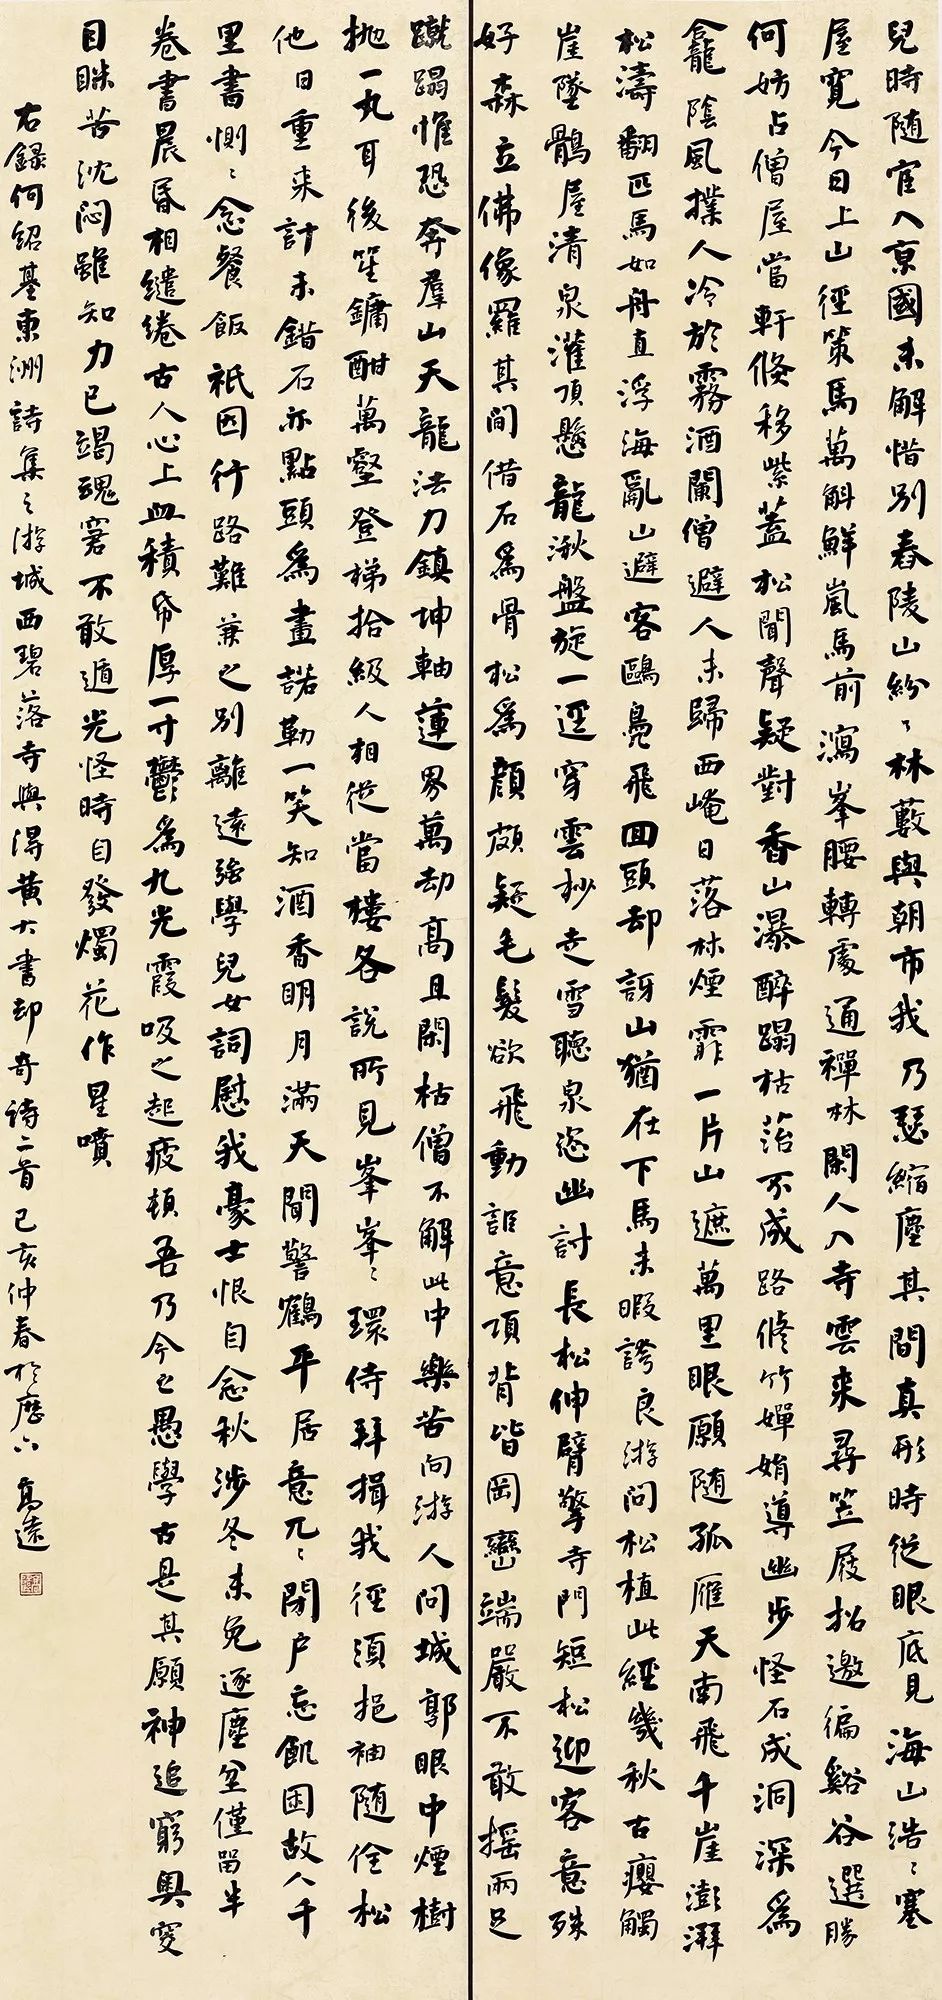 兒時随宦入京國未解惜别舂陵山紛〻林藪與朝市我乃瑟縮塵其間真形時從眼底見海山浩〻塞
屋寬今日上山徑策馬萬斛鮮嵐馬前瀉峯腰轉處通禪林閑人入寺雲来尋笠屐招邀徧谿谷選勝
何妨占僧屋當軒倏移紫蓋松聞聲疑對香山瀑醉蹋枯萡不成路修竹嬋娟導幽步怪石成洞深爲
龕陰風撲人冷於霧酒闌僧避人未歸西崦日落林煙霏一片山遮萬里眼願随孤雁天南飛千崖澎湃
松濤翻匹馬如舟直浮海亂山避客鷗鳧飛回頭却訝山猶在下馬未暇誇良游問松植此經幾秋古癭觸
崖墜鶻屋清泉灌頂懸龍湫盤旋一逕穿雲杪走雪聽泉恣幽討長松伸臂擎寺門短松迎客意殊
好森立佛像羅其間借石爲骨松爲顔頗疑毛髮欲飛動詎意項背皆岡巒端嚴不敢摇兩足
蹴蹋惟恐奔羣山天龍法力鎮坤軸蓮界萬劫高且閑枯僧不解此中樂苦向游人問城郭眼中煙樹
抛一丸耳後笙鏞酣萬壑登梯拾級人相從當樓各説所見峯峯〻環侍拜揖我徑須挹袖随佺松
他日重来計未錯石亦點頭爲畫諾勒一笑知酒香明月滿天聞警鶴平居意兀〻閉户忘飢困故人千
里書惻〻念餐飯祇因行路難兼之别離遠强學兒女詞慰我豪士恨自念秋涉冬未免逐塵坌僅留半
卷書晨昏相繾綣古人心上血積帋厚一寸鬱爲九光霞吸之起疲頓吾乃今之愚學古是其願神追窮奥窔
目眯苦沈悶雖知力已竭魂窘不敢遁光怪時自發燭花作星噴
右録何紹基東洲詩集之游城西碧落寺與得黄大書却寄詩二首己亥仲春於歷下高遠